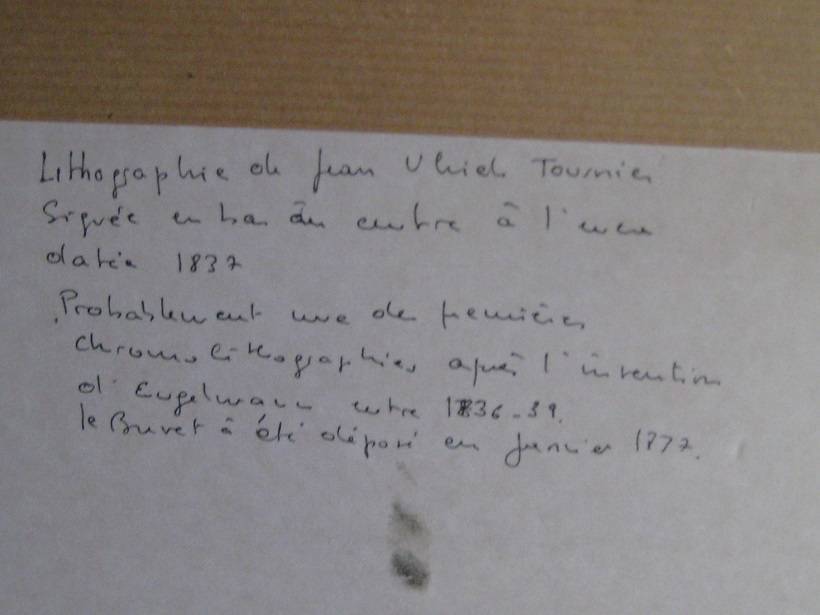 Lithographie de Jean Ulrich Tournier
Signée en bas au centre à l'encre
datée 1837
Probablement une des premières
chromolithographies après l'invention
d'Engelmann entre 1836-39.
le Buvet à été déposé en janvier 1837.